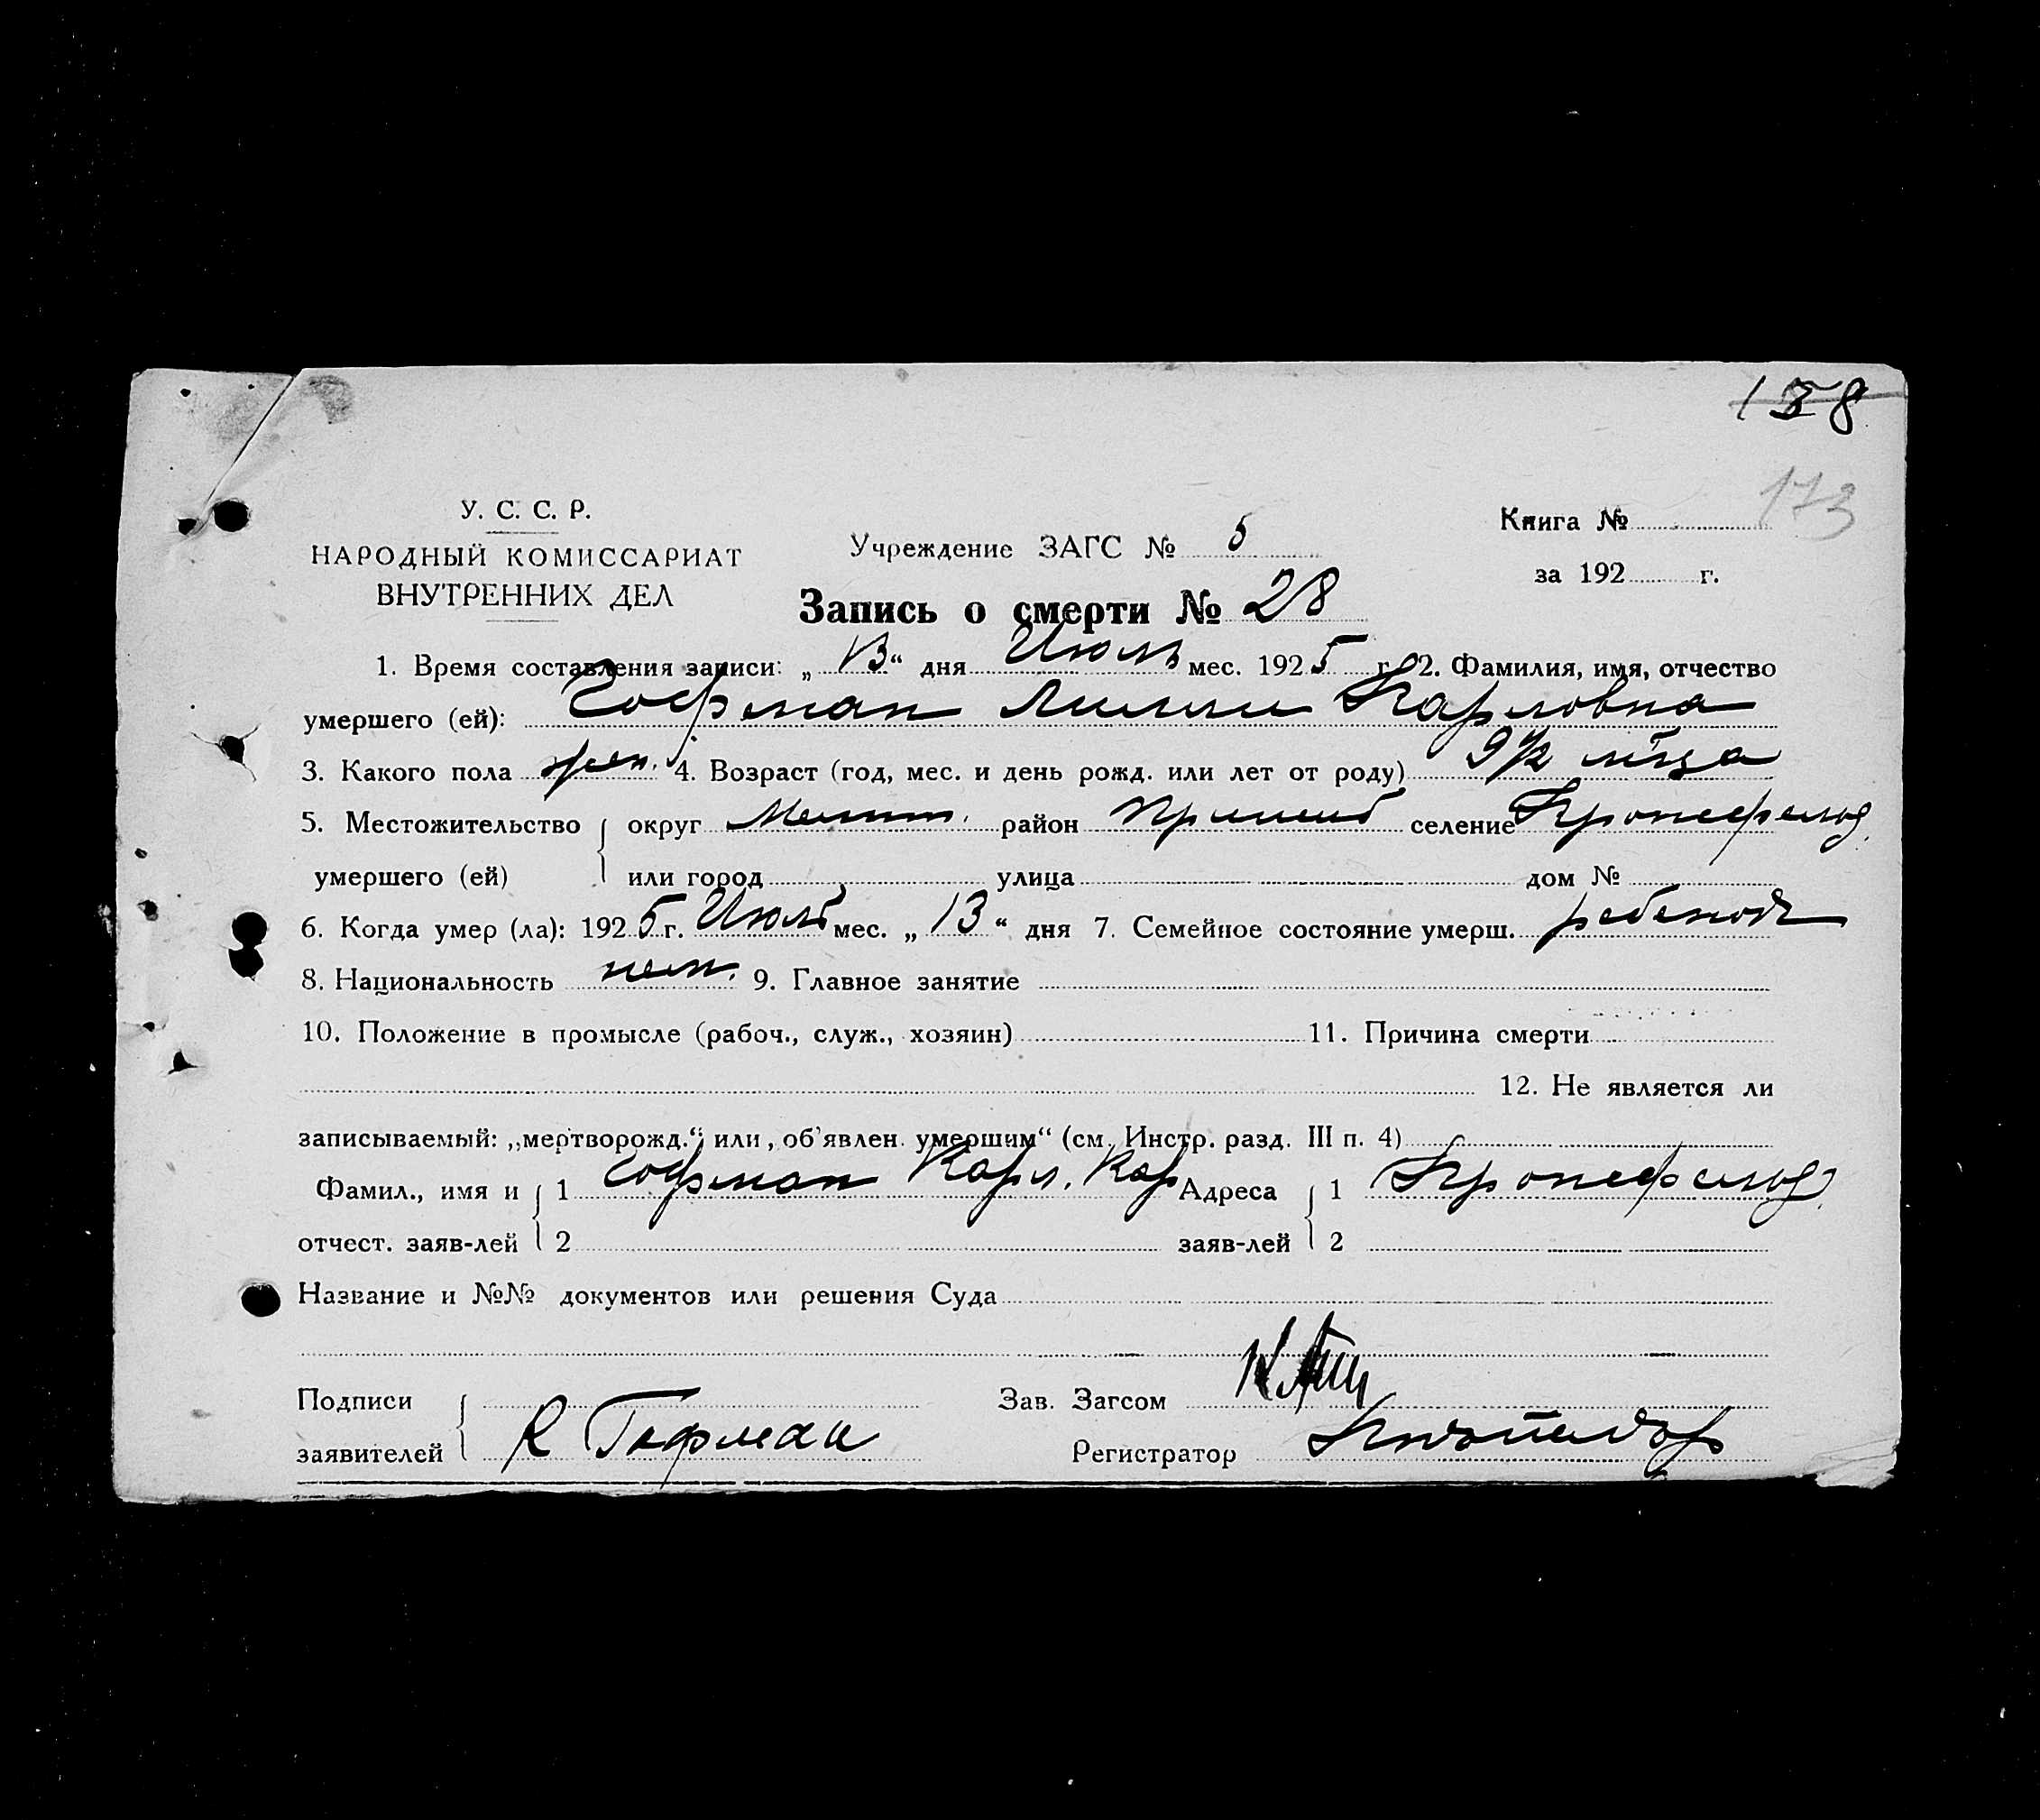 158
173
У. С. С. Р.
НАРОДНЫЙ КОМИССАРИАТ
ВНУТРЕННИХ ДЕЛ
Учреждение ЗАГС № 5
Книга №
за 192 г.
Запись о смерти № 28
1. Время составления записи: „ 13 “ дня Июль мес. 1925 г. 2. Фамилия, имя, отчество
умершего (ей): Гофман Лилли Карловна
3. Какого пола жен. 4. Возраст (год, мес. и день рожд. или лет от роду) 9½ м-ца
5. Местожительство округ Мелит. район Пришиб селение Кронсфельд
умершего (ей) или город улица дом №
6. Когда умер (ла): 1925 г. Июль мес. „ 13 “ дня 7. Семейное состояние умерш. ребенок
8. Национальность нем. 9. Главное занятие
10. Положение в промысле (рабоч., служ., хозяин) 11. Причина смерти
12. Не является ли
записываемый: „мертворожд.“ или „об'явлен. умершим“ (см. Инстр. разд. III п. 4)
Фамил., имя и 1 Гофман Карл. Кар Адреса 1 Кронсфельд
отчест. заяв-лей 2 заяв-лей 2
Название и №№ документов или решения Суда
Подписи Зав. Загсом
заявителей К Гофман Регистратор